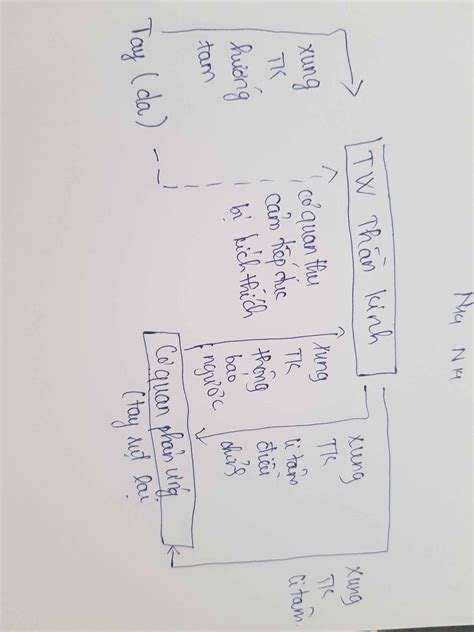 TW Thần kinh
xung
TK
hướng
tâm
Tay (da)
cơ quan thụ
cảm tiếp tục
bị kích thích
xung
TK
thông
báo
ngược
xung
TK
li tâm
điều
chỉnh
xung
TK
li tâm.
Cơ quan phản ứng
(tay rụt lại